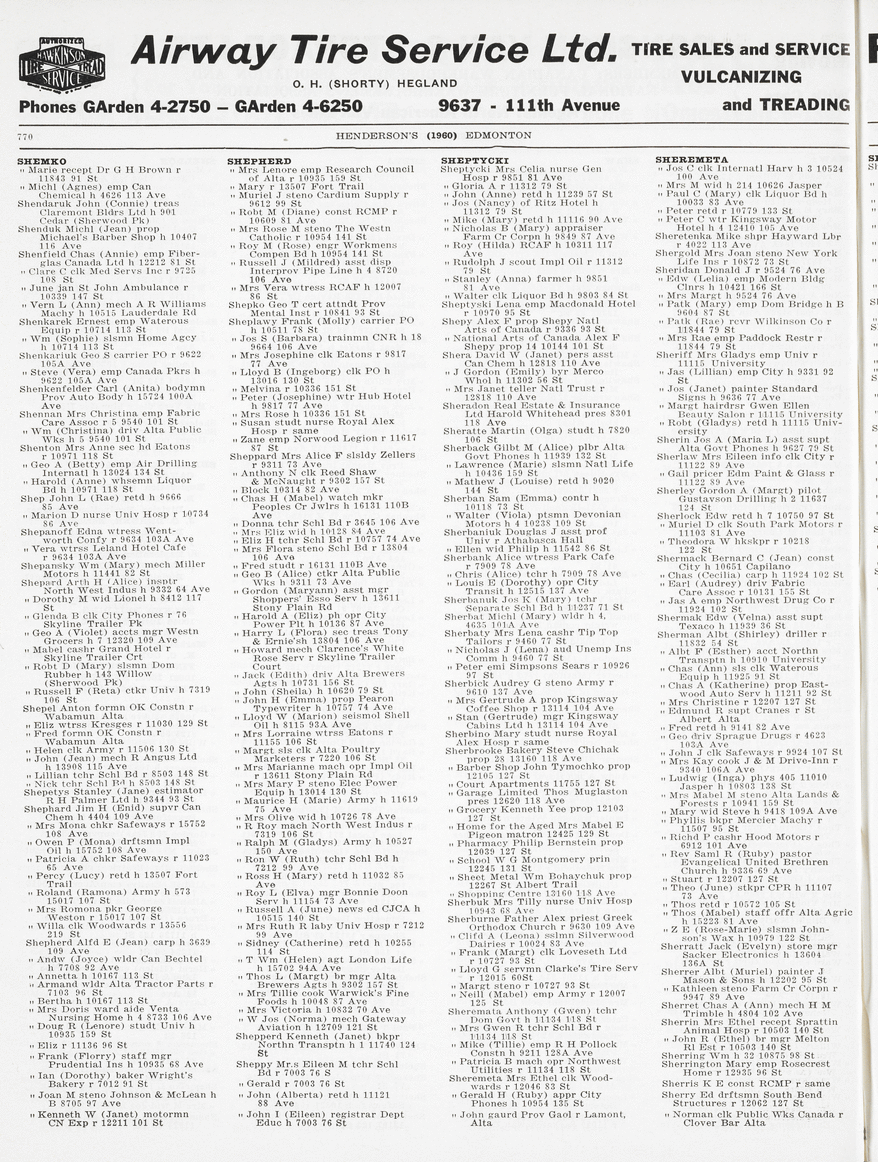 AUTHORIZED
HAWKINSON
TIRE TREAD
SERVICE
Airway Tire Service Ltd.
O. H. (SHORTY) HEGLAND
Phones GArden 4-2750 — GArden 4-6250
9637 - 111th Avenue
TIRE SALES and SERVICE
VULCANIZING
and TREADING
770
HENDERSON'S (1960) EDMONTON
SHEMKO
" Marie recept Dr G H Brown r
11843 91 St
" Michl (Agnes) emp Can
Chemical h 4626 113 Ave
Shendaruk John (Connie) treas
Claremont Bldrs Ltd h 901
Cedar (Sherwood Pk)
Shenduk Michl (Jean) prop
Michael's Barber Shop h 10407
116 Ave
Shenfield Chas (Annie) emp Fiber-
glas Canada Ltd h 12212 81 St
" Clare C clk Med Servs Inc r 9725
108 St
" June jan St John Ambulance r
10339 147 St
" Vern L (Ann) mech A R Williams
Machy h 10515 Lauderdale Rd
Shenkarek Ernest emp Waterous
Equip r 10714 113 St
" Wm (Sophie) slsmn Home Agcy
h 10714 113 St
Shenkariuk Geo S carrier PO r 9622
105A Ave
" Steve (Vera) emp Canada Pkrs h
9622 105A Ave
Shenkenfelder Carl (Anita) bodymn
Prov Auto Body h 15724 100A
Ave
Shennan Mrs Christina emp Fabric
Care Assoc r 5 9540 101 St
" Wm (Christina) driv Alta Public
Wks h 5 9540 101 St
Shenton Mrs Anne sec hd Eatons
r 10971 118 St
" Geo A (Betty) emp Air Drilling
Internatl h 13024 134 St
" Harold (Anne) whsemn Liquor
Bd h 10971 118 St
Shep John L (Rae) retd h 9666
85 Ave
" Marion D nurse Univ Hosp r 10734
86 Ave
Shepanoff Edna wtress Went-
worth Confy r 9634 103A Ave
" Vera wtrss Leland Hotel Cafe
r 9634 103A Ave
Shepansky Wm (Mary) mech Miller
Motors h 11441 82 St
Shepard Arth H (Alice) insptr
North West Indus h 9332 64 Ave
" Dorothy M wid Lionel h 8412 117
St
" Glenda B clk City Phones r 76
Skyline Trailer Pk
" Geo A (Violet) accts mgr Westn
Grocers h 7 12320 109 Ave
" Mabel cashr Grand Hotel r
Skyline Trailer Crt
" Robt D (Mary) slsmn Dom
Rubber h 143 Willow
(Sherwood Pk)
" Russell F (Reta) ctkr Univ h 7319
106 St
Shepel Anton formn OK Constn r
Wabamun Alta
" Eliz wtrss Kresges r 11030 129 St
" Fred formn OK Constn r
Wabamun Alta
" Helen clk Army r 11506 130 St
" John (Jean) mech R Angus Ltd
h 13908 115 Ave
" Lillian tchr Schl Bd r 8503 148 St
" Nick tchr Schl Bd h 8503 148 St
Shepetys Stanley (Jane) estimator
R H Palmer Ltd h 9344 93 St
Shephard Jim H (Enid) supvr Can
Chem h 4404 109 Ave
" Mrs Mona ckr Safeways r 15752
108 Ave
" Owen P (Mona) drftsmn Impl
Oil h 15752 108 Ave
" Patricia A ckr Safeways r 11023
65 Ave
" Percy (Lucy) retd h 13507 Fort
Trail
" Roland (Ramona) Army h 573
15017 107 St
" Mrs Romona pkr George
Weston r 15017 107 St
" Willa clk Woodwards r 13556
219 St
Shepherd Alfd E (Jean) carp h 3639
109 Ave
" Andw (Joyce) wldr Can Bechtel
h 7708 92 Ave
" Annetta h 10167 113 St
" Armand wldr Alta Tractor Parts r
7103 96 St
" Bertha h 10167 113 St
" Mrs Doris ward aide Venta
Nursing Home h 4 8733 106 Ave
" Doug R (Lenore) studt Univ h
10935 159 St
" Eliz r 11136 96 St
" Frank (Florry) staff mgr
Prudential Ins h 10935 68 Ave
" Ian (Dorothy) baker Wright's
Bakery r 7012 91 St
" Joan M steno Johnson & McLean h
B 8705 97 Ave
" Kenneth W (Janet) motormn
CN Exp r 12211 101 St
SHEPHERD
" Mrs Lenore emp Research Council
of Alta r 10935 159 St
" Mary r 13507 Fort Trail
" Muriel J steno Cardium Supply r
9612 99 St
" Robt M (Diane) const RCMP r
10609 81 Ave
" Mrs Rose M steno The Westn
Catholic r 10954 141 St
" Roy M (Rose) engr Workmens
Compen Bd h 10954 141 St
" Russell J (Mildred) asst disp
Interprov Pipe Line h 4 8720
106 Ave
" Mrs Vera wtress RCAF h 12007
86 St
Shepko Geo T cert attndt Prov
Mental Inst r 10841 93 St
Sheplawy Frank (Molly) carrier PO
h 10511 78 St
" Jos S (Barbara) trainmn CNR h 18
9664 106 Ave
" Mrs Josephine clk Eatons r 9817
77 Ave
" Lloyd B (Ingeborg) clk PO h
13016 130 St
" Melvina r 10336 151 St
" Peter (Josephine) wtr Hub Hotel
h 9817 77 Ave
" Mrs Rose h 10336 151 St
" Susan studt nurse Royal Alex
Hosp r same
" Zane emp Norwood Legion r 11617
87 St
Sheppard Mrs Alice F slsldy Zellers
r 9311 73 Ave
" Anthony N clk Reed Shaw
& McNaught r 9302 157 St
" Block 10314 82 Ave
" Chas H (Mabel) watch mkr
Peoples Cr Jwlrs h 16131 110B
Ave
" Donna tchr Schl Bd r 3645 106 Ave
" Mrs Eliz wid h 10128 84 Ave
" Eliz H tchr Schl Bd r 10757 74 Ave
" Mrs Flora steno Schl Bd r 13804
106 Ave
" Fred studt r 16131 110B Ave
" Geo B (Alice) ctkr Alta Public
Wks h 9311 73 Ave
" Gordon (Maryann) asst mgr
Shoppers' Esso Serv h 13611
Stony Plain Rd
" Harold A (Eliz) ph opr City
Power Plt h 10136 87 Ave
" Harry L (Flora) sec treas Tony
& Ernie'sh 13804 106 Ave
" Howard mech Clarence's White
Rose Serv r Skyline Trailer
Court
" Jack (Edith) driv Alta Brewers
Agts h 10731 156 St
" John (Sheila) h 10620 79 St
" John H (Emma) prop Pearon
Typewriter h 10757 74 Ave
" Lloyd W (Marion) seismol Shell
Oil h 8115 93A Ave
" Mrs Lorraine wtrss Eatons r
11155 106 St
" Margt sls clk Alta Poultry
Marketers r 7220 106 St
" Mrs Marianne mach opr Impl Oil
r 13611 Stony Plain Rd
" Mrs Mary P steno Elec Power
Equip h 13014 130 St
" Maurice H (Marie) Army h 11619
75 Ave
" Mrs Olive wid h 10726 78 Ave
" R Roy mach North West Indus r
7319 106 St
" Ralph M (Gladys) Army h 10527
150 Ave
" Ron W (Ruth) tchr Schl Bd h
7212 99 Ave
" Ross H (Mary) retd h 11032 85
Ave
" Roy L (Elva) mgr Bonnie Doon
Serv h 11154 73 Ave
" Russell A (June) news ed CJCA h
10515 140 St
" Mrs Ruth R laby Univ Hosp r 7212
99 Ave
" Sidney (Catherine) retd h 10255
114 St
" T Wm (Helen) agt London Life
h 15702 94A Ave
" Thos L (Margt) br mgr Alta
Brewers Agts h 9302 157 St
" Mrs Tillie cook Warwick's Fine
Foods h 10048 87 Ave
" Mrs Victoria h 10832 70 Ave
" W Jos (Norma) mech Gateway
Aviation h 12709 121 St
Shepperd Kenneth (Janet) bkpr
Northn Transptn h 1 11740 124
St
Sheppy Mrs Eileen M tchr Schl
Bd r 7003 76 St
" Gerald r 7003 76 St
" John (Alberta) retd h 11121
88 Ave
" John I (Eileen) registrar Dept
Educ h 7003 76 St
SHEPTYCKI
Sheptycki Mrs Celia nurse Gen
Hosp r 9851 81 Ave
" Gloria A r 11312 79 St
" John (Anne) retd h 11239 57 St
" Jos (Nancy) of Ritz Hotel h
11312 79 St
" Mike (Mary) retd h 11116 90 Ave
" Nicholas B (Mary) appraiser
Farm Cr Corpn h 9849 87 Ave
" Roy (Hilda) RCAF h 10311 117
Ave
" Rudolph J scout Impl Oil r 11312
79 St
" Stanley (Anna) farmer h 9851
81 Ave
" Walter clk Liquor Bd h 9803 84 St
Sheptyski Lena emp Macdonald Hotel
r 10970 95 St
Shepy Alex F prop Shepy Natl
Arts of Canada r 9336 93 St
" National Arts of Canada Alex F
Shepy prop 14 10144 101 St
Shera David W (Janet) pers asst
Can Chem h 12818 110 Ave
" J Gordon (Emily) byr Merco
Whol h 11302 56 St
" Mrs Janet teller Natl Trust r
12818 110 Ave
Sheradon Real Estate & Insurance
Ltd Harold Whitehead pres 8301
118 Ave
Sheratte Martin (Olga) studt h 7820
106 St
Sherback Gilbt M (Alice) plbr Alta
Govt Phones h 11939 132 St
" Lawrence (Marie) slsmn Natl Life
h 10436 159 St
" Mathew J (Louise) retd h 9020
144 St
Sherban Sam (Emma) contr h
10118 73 St
" Walter (Viola) ptsmn Devonian
Motors h 4 10238 109 St
Sherbaniuk Douglas J asst prof
Univ r Athabasca Hall
" Ellen wid Philip h 11542 86 St
Sherbank Alice wtress Park Cafe
r 7909 78 Ave
" Chris (Alice) tchr h 7909 78 Ave
" Louis E (Dorothy) opr City
Transit h 12515 137 Ave
Sherbanuk Jos K (Mary) tchr
Separate Schl Bd h 11237 71 St
Sherbat Michl (Mary) wldr h 4,
4635 101A Ave
Sherbaty Mrs Lena cashr Tip Top
Tailors r 9460 77 St
" Nicholas J (Lena) aud Unemp Ins
Comm h 9460 77 St
" Peter emi Simpsons Sears r 10926
97 St
Sherbick Audrey G steno Army r
9610 137 Ave
" Mrs Gertrude A prop Kingsway
Coffee Shop r 13114 104 Ave
" Stan (Gertrude) mgr Kingsway
Cabins Ltd h 13114 104 Ave
Sherbino Mary studt nurse Royal
Alex Hosp r same
Sherbrooke Bakery Steve Chichak
prop 28 13160 118 Ave
" Barber Shop John Tymochko prop
12105 127 St
" Court Apartments 11755 127 St
" Garage Limited Thos Muglaston
pres 12620 118 Ave
" Grocery Kenneth Yee prop 12103
127 St
" Home for the Aged Mrs Mabel E
Pigeon matron 12425 129 St
" Pharmacy Philip Bernstein prop
12039 127 St
" School W G Montgomery prin
12245 131 St
" Sheet Metal Wm Bohaychuk prop
12267 St Albert Trail
" Shopping Centre 13160 118 Ave
Sherbuk Mrs Tilly nurse Univ Hosp
10943 68 Ave
Sherburne Father Alex priest Greek
Orthodox Church r 9630 109 Ave
" Clifd A (Leona) slsmn Silverwood
Dairies r 10024 83 Ave
" Frank (Margt) clk Loveseth Ltd
r 10727 93 St
" Lloyd G servmn Clarke's Tire Serv
r 12015 60St
" Margt steno r 10727 93 St
" Neill (Mabel) emp Army r 12007
125 St
Sheremata Anthony (Gwen) tchr
Dom Govt h 11134 118 St
" Mrs Gwen R tchr Schl Bd r
11134 118 St
" Mike (Tillie) emp R H Pollock
Constn h 9211 128A Ave
" Patricia B mach opr Northwest
Utilities r 11134 118 St
Sheremeta Mrs Ethel clk Wood-
wards r 12046 83 St
" Gerald H (Ruby) appr City
Phones h 10954 135 St
" John gaurd Prov Gaol r Lamont,
Alta
SHEREMETA
" Jos C clk Internatl Harv h 3 10524
100 Ave
" Mrs M wid h 214 10626 Jasper
" Paul C (Mary) clk Liquor Bd h
10033 83 Ave
" Peter retd r 10779 133 St
" Peter C wtr Kingsway Motor
Hotel h 4 12410 105 Ave
Sheretenka Mike shpr Hayward Lbr
r 4022 113 Ave
Shergold Mrs Joan steno New York
Life Ins r 10872 73 St
Sheridan Donald J r 9524 76 Ave
" Edw (Lelia) emp Modern Bldg
Clnrs h 10421 166 St
" Mrs Margt h 9524 76 Ave
" Patk (Mary) emp Dom Bridge h B
9604 87 St
" Patk (Rae) rcvr Wilkinson Co r
11844 79 St
" Mrs Rae emp Paddock Restr r
11844 79 St
Sheriff Mrs Gladys emp Univ r
11115 University
" Jas (Lillian) emp City h 9331 92
St
" Jos (Janet) painter Standard
Signs h 9636 77 Ave
" Margt hairdrsr Gwen Ellen
Beauty Salon r 11115 University
" Robt (Gladys) retd h 11115 Univ-
ersity
Sherin Jos A (Maria L) asst supt
Alta Govt Phones h 9627 79 St
Sherlaw Mrs Eileen info clk City r
11122 89 Ave
" Gail pricer Edm Paint & Glass r
11122 89 Ave
Sherley Gordon A (Margt) pilot
Gustavson Drilling h 2 11637
124 St
Sherlock Edw retd h 7 10750 97 St
" Muriel D clk South Park Motors r
11103 81 Ave
" Theodora W hkskpr r 10218
122 St
Shermack Bernard C (Jean) const
City h 10651 Capilano
" Chas (Cecilia) carp h 11924 102 St
" Earl (Audrey) driv Fabric
Care Assoc r 10131 155 St
" Jas A emp Northwest Drug Co r
11924 102 St
Shermak Edw (Velna) asst supt
Texaco h 11939 36 St
Sherman Albt (Shirley) driller r
11832 54 St
" Albt F (Esther) acct Northn
Transptn h 10910 University
" Chas (Ann) sls clk Waterous
Equip h 11925 91 St
" Chas A (Katherine) prop East-
wood Auto Serv h 11211 92 St
" Mrs Christine r 12207 127 St
" Edmund R supt Cranes r St
Albert Alta
" Fred retd h 9141 82 Ave
" Geo driv Sprague Drugs r 4623
103A Ave
" John J clk Safeways r 9924 107 St
" Mrs Kay cook J & M Drive-Inn r
9340 106A Ave
" Ludwig (Inga) phys 405 11010
Jasper h 10803 138 St
" Mrs Mabel M steno Alta Lands &
Forests r 10941 159 St
" Mary wid Steve h 9418 109A Ave
" Phyllis bkpr Mercier Machy r
11507 95 St
" Richd P cashr Hood Motors r
6912 101 Ave
" Rev Saml R (Ruby) pastor
Evangelical United Brethren
Church h 9336 69 Ave
" Stuart r 12207 127 St
" Theo (June) stkpr CPR h 11107
73 Ave
" Thos retd r 10572 105 St
" Thos (Mabel) staff offr Alta Agric
h 15223 81 Ave
" Z E (Rose-Marie) slsmn John-
son's Wax h 10979 122 St
Sherratt Jack (Evelyn) store mgr
Sacker Electronics h 13604
136A St
Sherrer Albt (Muriel) painter J
Mason & Sons h 12202 95 St
" Kathleen steno Farm Cr Corpn r
9947 89 Ave
Sherret Chas A (Ann) mech H M
Trimble h 4804 102 Ave
Sherrin Mrs Ethel recept Sprattin
Animal Hosp r 10503 140 St
" John R (Ethel) br mgr Melton
Rl Est r 10503 140 St
Sherring Wm h 32 10875 98 St
Sherrington Mary emp Rosecrest
Home r 12935 96 St
Sherris K E const RCMP r same
Sherry Ed drftsmn South Bend
Structures r 12062 127 St
" Norman clk Public Wks Canada r
Clover Bar Alta